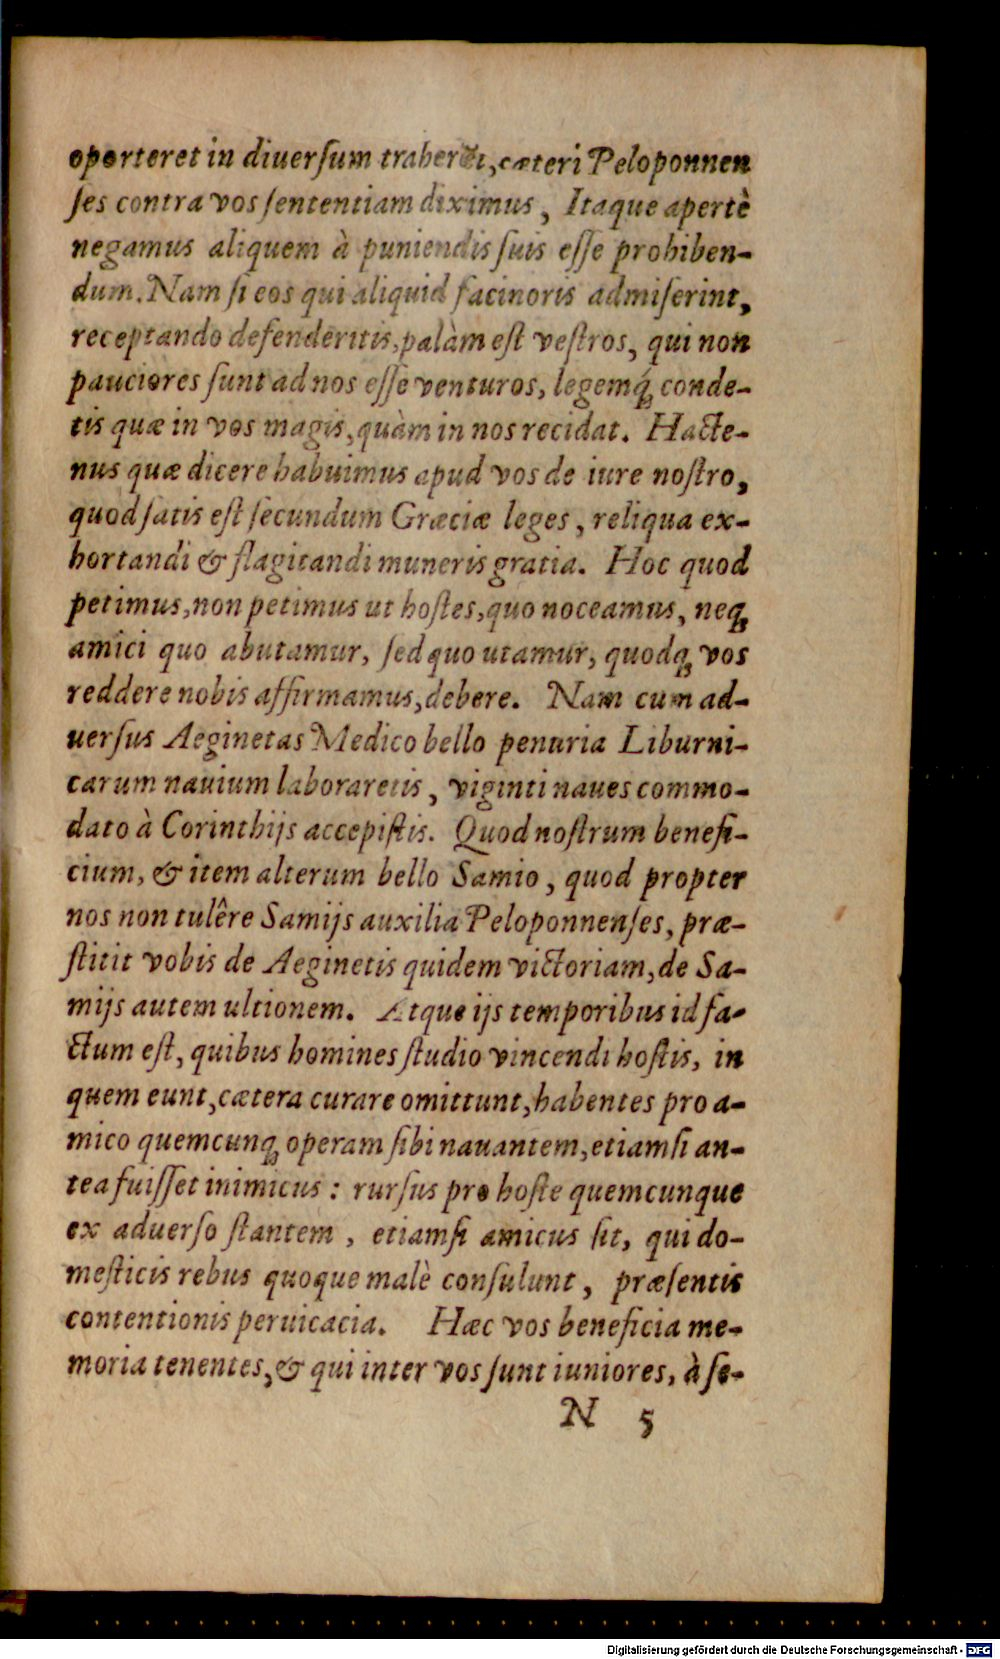 oporteret in diuerſum traherẽt, cæteri Peloponnen
ſes contra vos ſententiam diximus, Itaque apertè
negamus aliquem à puniendis ſuis eſſe prohiben-
dum. Nam ſi eos qui aliquid facinoris admiſerint,
receptando defenderitis, palàm eſt veſtros, qui non
pauciores ſunt ad nos eſſe venturos, legemq́ꝫ conde-
tis quæ in vos magis, quàm in nos recidat. Hacte-
nus quæ dicere habuimus apud vos de iure noſtro,
quod ſatis eſt ſecundum Græciæ leges, reliqua ex-
hortandi & flagitandi muneris gratia. Hoc quod
petimus, non petimus ut hoſtes, quo noceamus, neqꝫ
amici quo abutamur, ſed quo utamur, quodqꝫ vos
reddere nobis affirmamus, debere. Nam cum ad-
uerſus Aeginetas Medico bello penuria Liburni-
carum nauium laboraretis, viginti naues commo-
dato à Corinthijs accepiſtis. Quod noſtrum benefi-
cium, & item alterum bello Samio, quod propter
nos non tulêre Samijs auxilia Peloponnenſes, præ-
ſtitit vobis de Aeginetis quidem victoriam, de Sa-
mijs autem ultionem. Atque ijs temporibus id fa-
ctum eſt, quibus homines ſtudio vincendi hoſtis, in
quem eunt, cætera curare omittunt, habentes pro a-
mico quemcunqꝫ operam ſibi nauantem, etiamſi an-
tea fuiſſet inimicus : rurſus pro hoſte quemcunque
ex aduerſo ſtantem, etiamſi amicus ſit, qui do-
meſticis rebus quoque malè conſulunt, præſentis
contentionis peruicacia. Hæc vos beneficia me-
moria tenentes, & qui inter vos ſunt iuniores, à ſe-
N 5
Digitalisierung gefördert durch die Deutsche Forschungsgemeinschaft - DFG